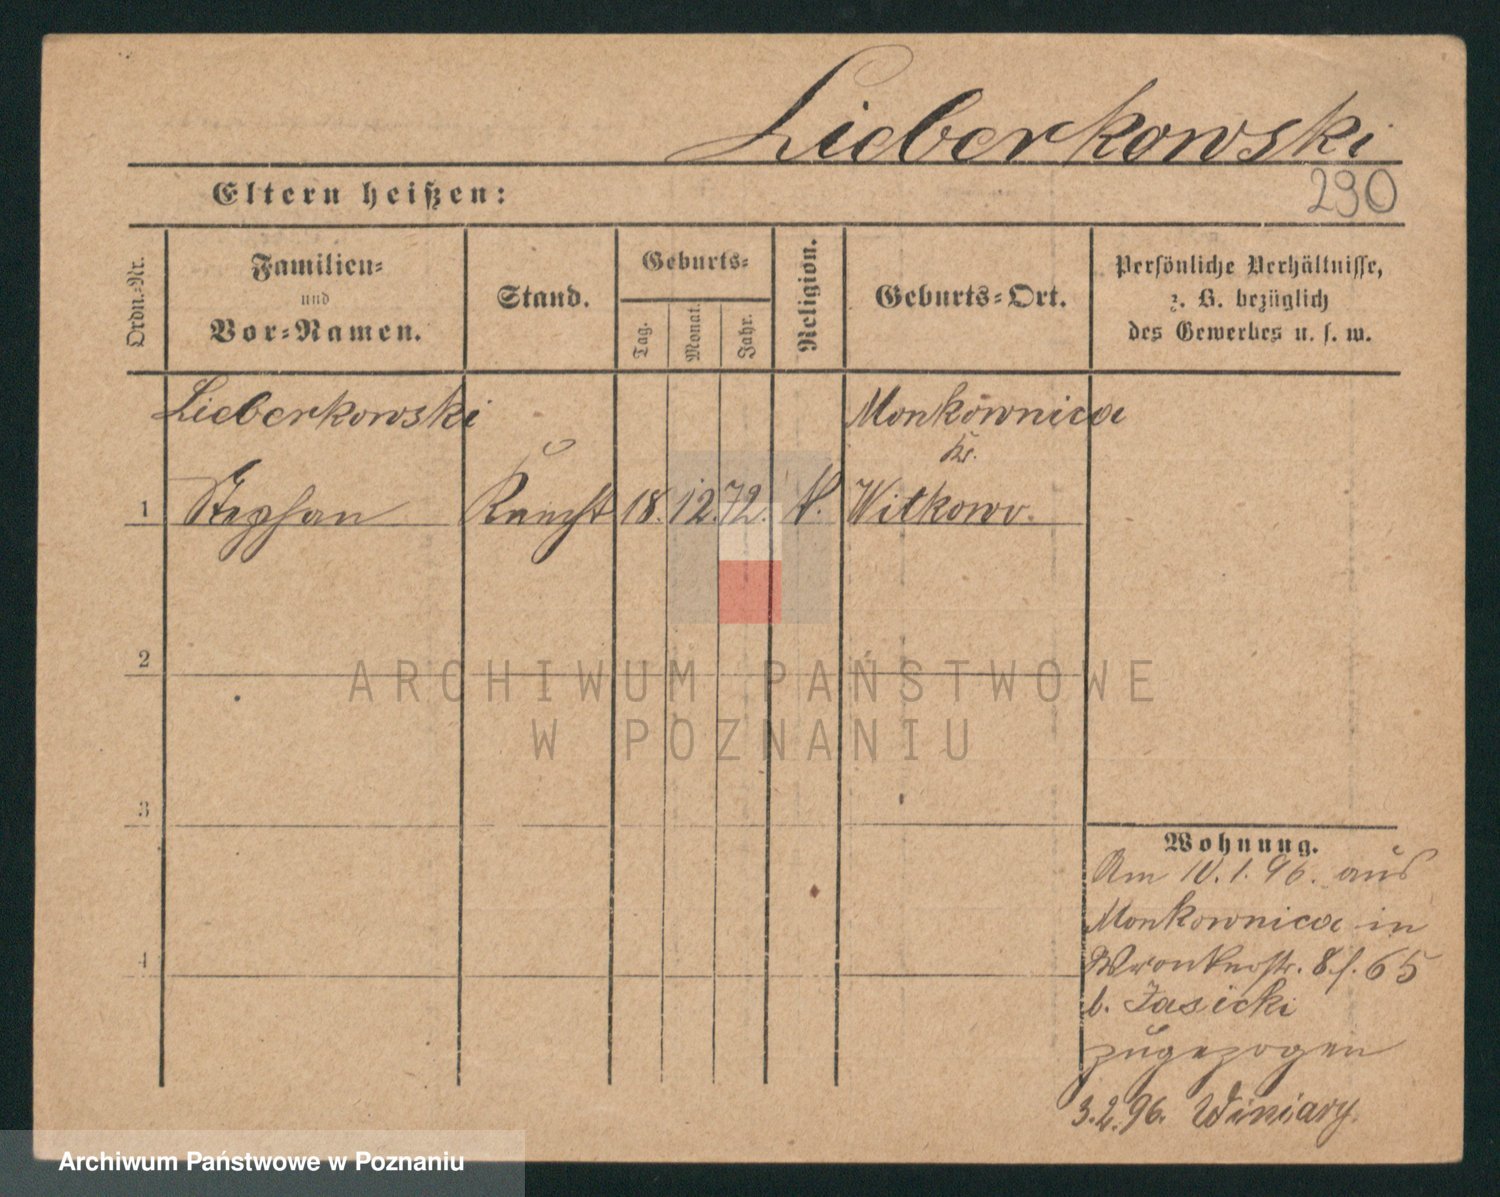 Lieberkowski
290
Eltern heißen:
Ordn.-Nr.
Familien-
und
Vor-Namen.
Stand.
Geburts-
Tag.
Monat.
Jahr.
Religion.
Geburts-Ort.
Persönliche Verhältnisse,
z. B. bezüglich
des Gewerbes u. s. w.
Lieberkowski
Monkownica
Kr.
1 Stephan Knecht 18. 12. 72. k. Witkowo.
2
ARCHIWUM PAŃSTWOWE
W POZNANIU
3
Wohnung.
Am 10.1.96. aus
Monkownica in
4
Wronkerstr. 8/. 65
b. Jasicki
zugezogen
3.2.96. Winiary.
Archiwum Państwowe w Poznaniu